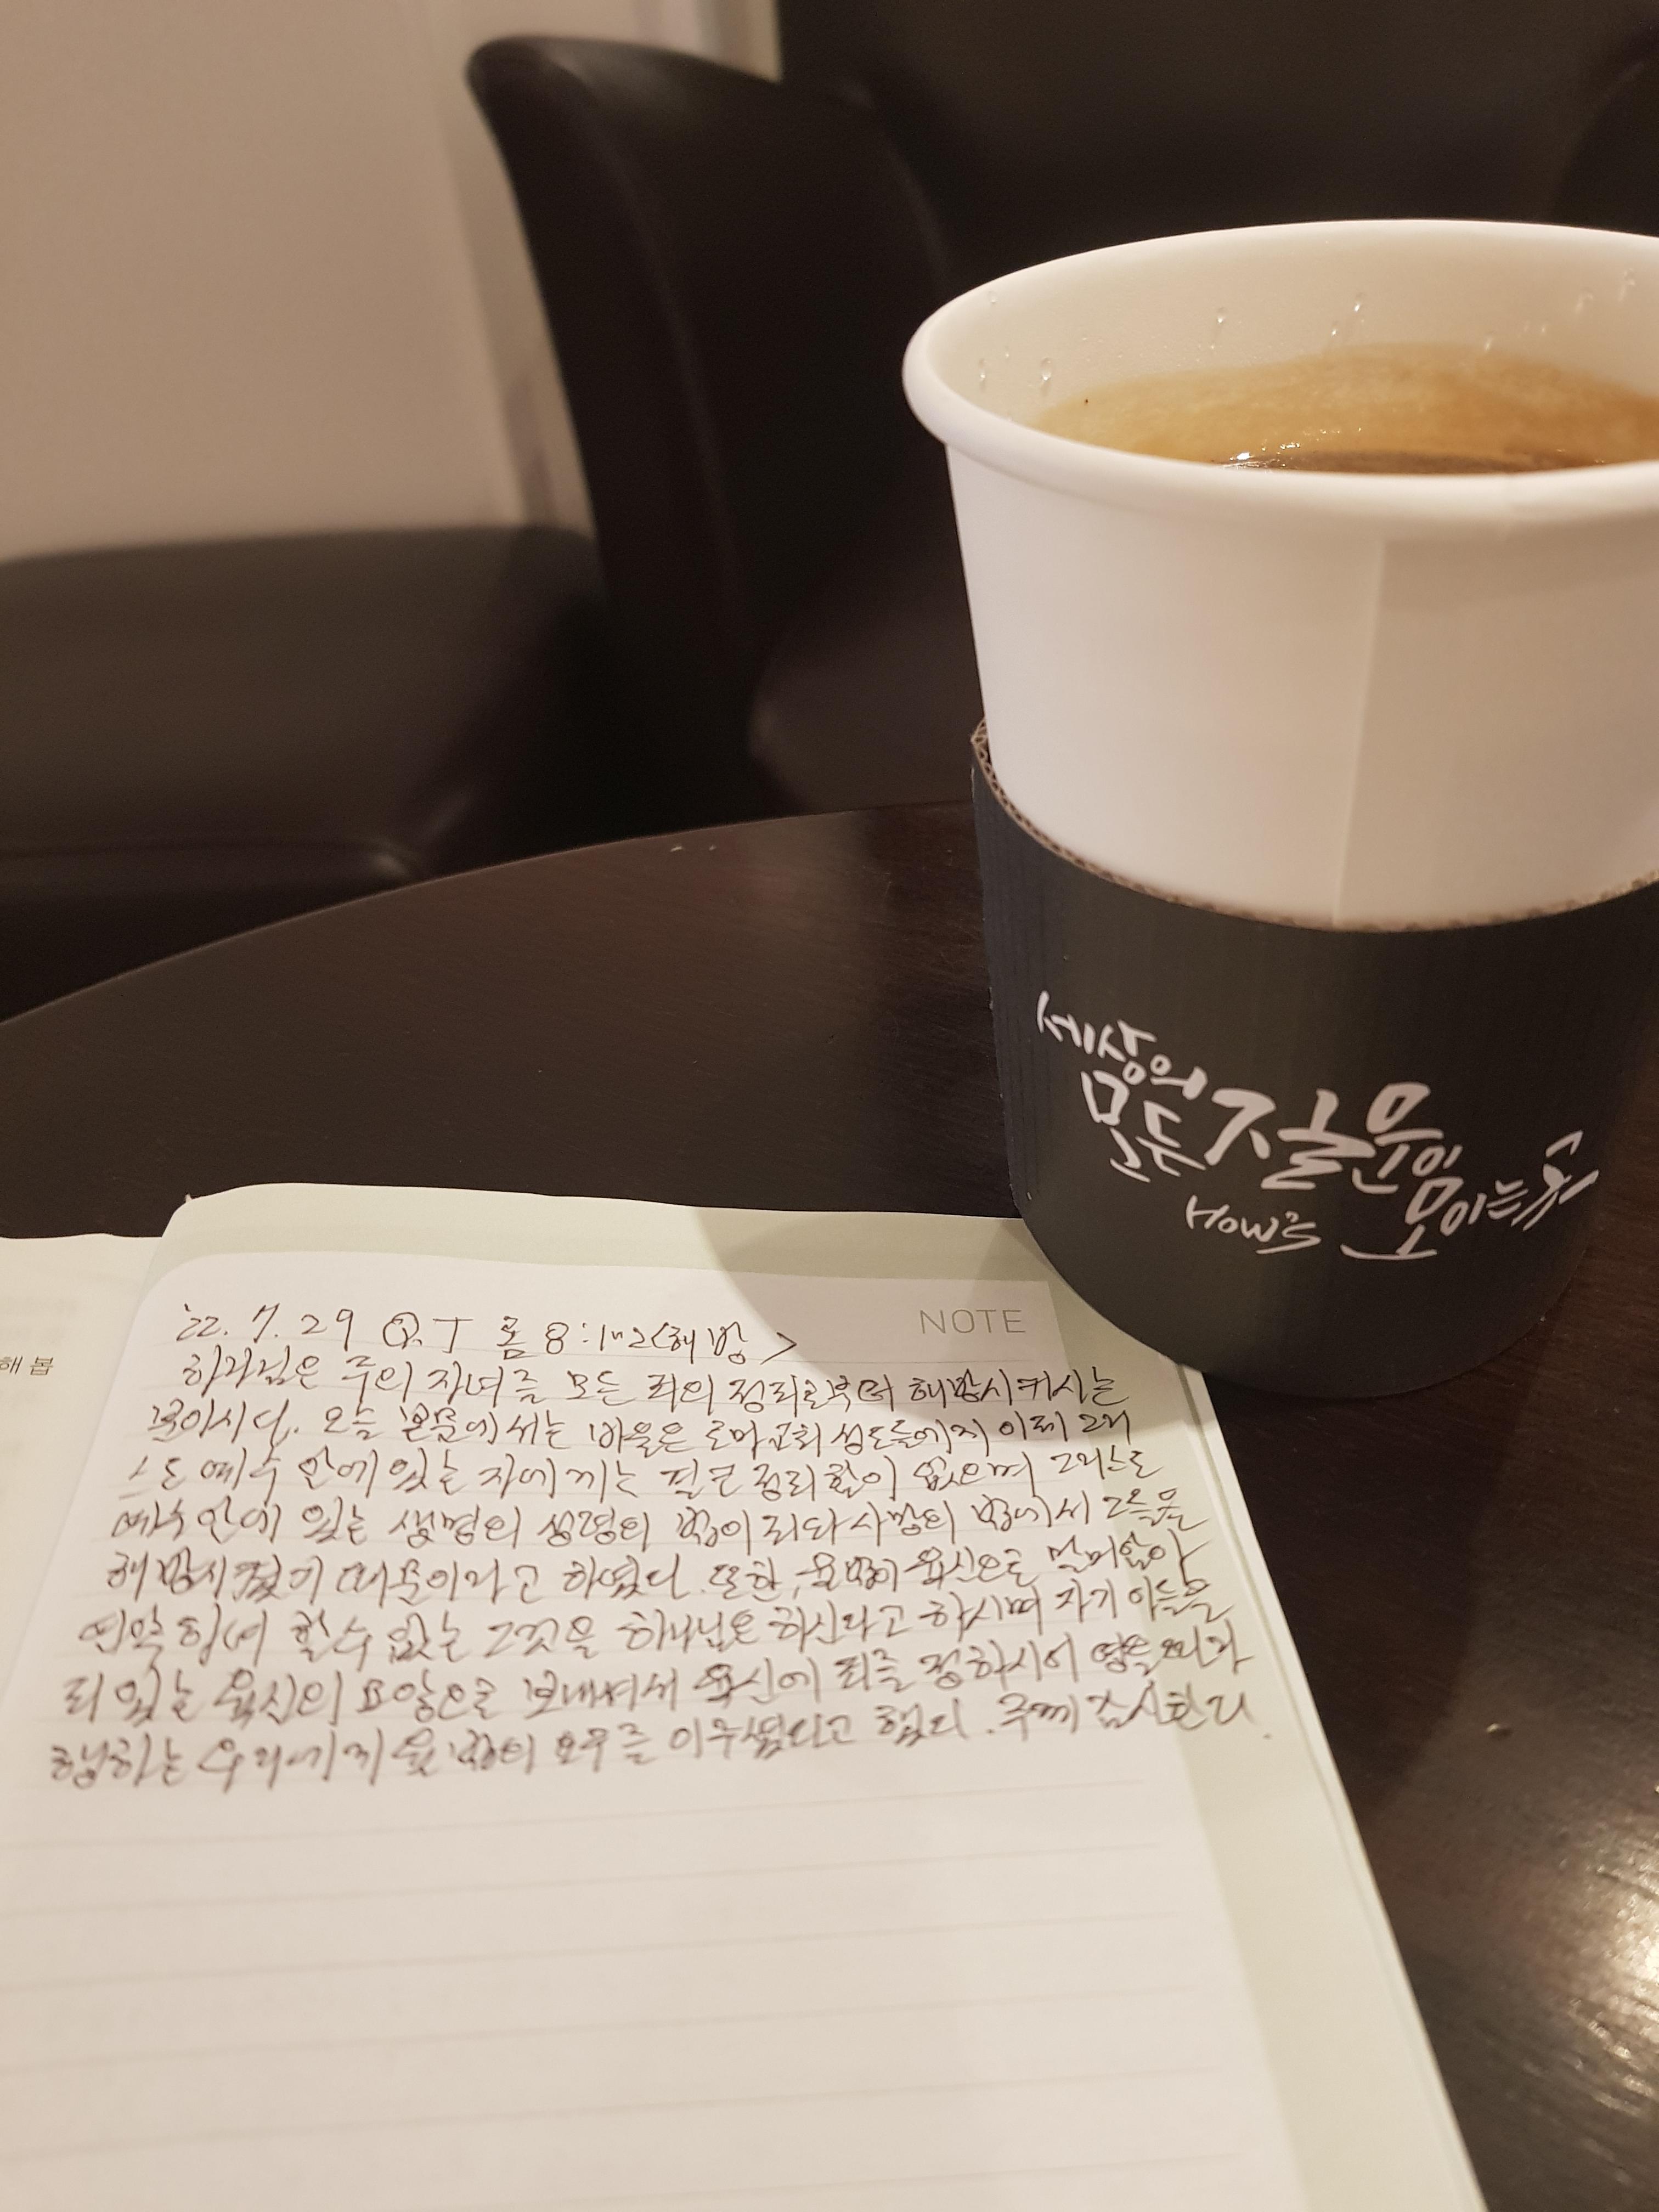 세상의
모든 질문이
모이는 곳
How's
NOTE
'22. 7. 29 Q.T 롬 8:1~2 <해방>
하나님은 주의 자녀를 모든 죄의 정죄로부터 해방시켜시는
분이시다. 오늘 본문에서는 바울은 로마교회 성도들에게 이제 그리
스도 예수 안에 있는 자에게는 결코 정죄함이 없으며 그리스도
예수 안에 있는 생명의 성령의 법이 죄와 사망의 법에서 그들을
해방시켰기 때문이라고 하였다. 또한, 율법이 육신으로 말미암아
연약하여 할 수 없는 그것을 하나님은 하신다고 하시며 자기 아들을
죄 있는 육신의 모양으로 보내셔서 육신에 죄를 정하시어 영을 따라
행하는 우리에게 율법의 요구를 이루셨다고 했다. 주께 감사한다.
해 봅